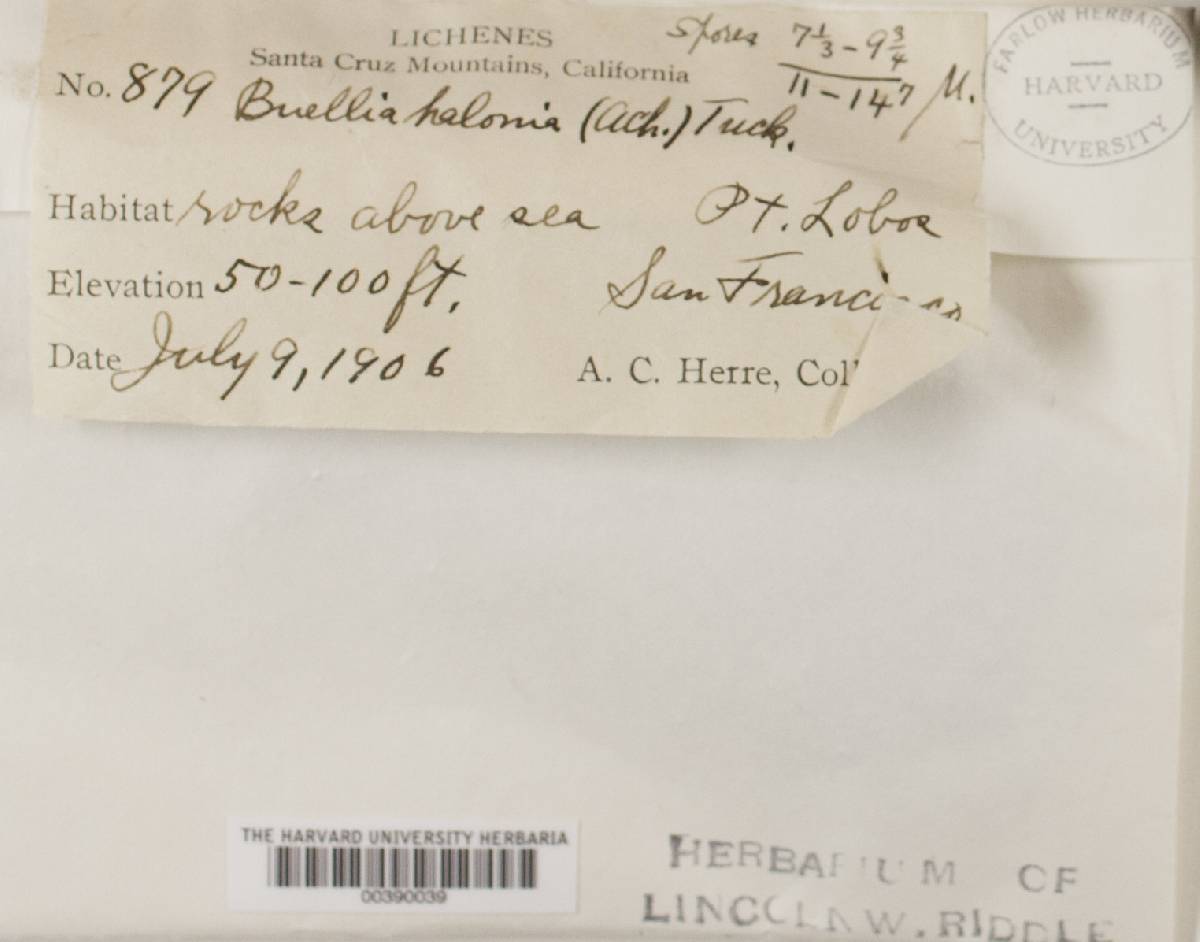 LICHENES
Santa Cruz Mountains, California
Spores 7⅓ - 9¾
11 - 14 7 / M.
No. 879 Buellia halonia (Ach.) Tuck.
Habitat rocks above sea Pt. Lobos
Elevation 50-100 ft. San Francisco
Date July 9, 1906 A. C. Herre, Coll
FARLOW HERBARIUM
HARVARD
UNIVERSITY
THE HARVARD UNIVERSITY HERBARIA
00390039
HERBARIUM OF
LINCOLN W. RIDDLE